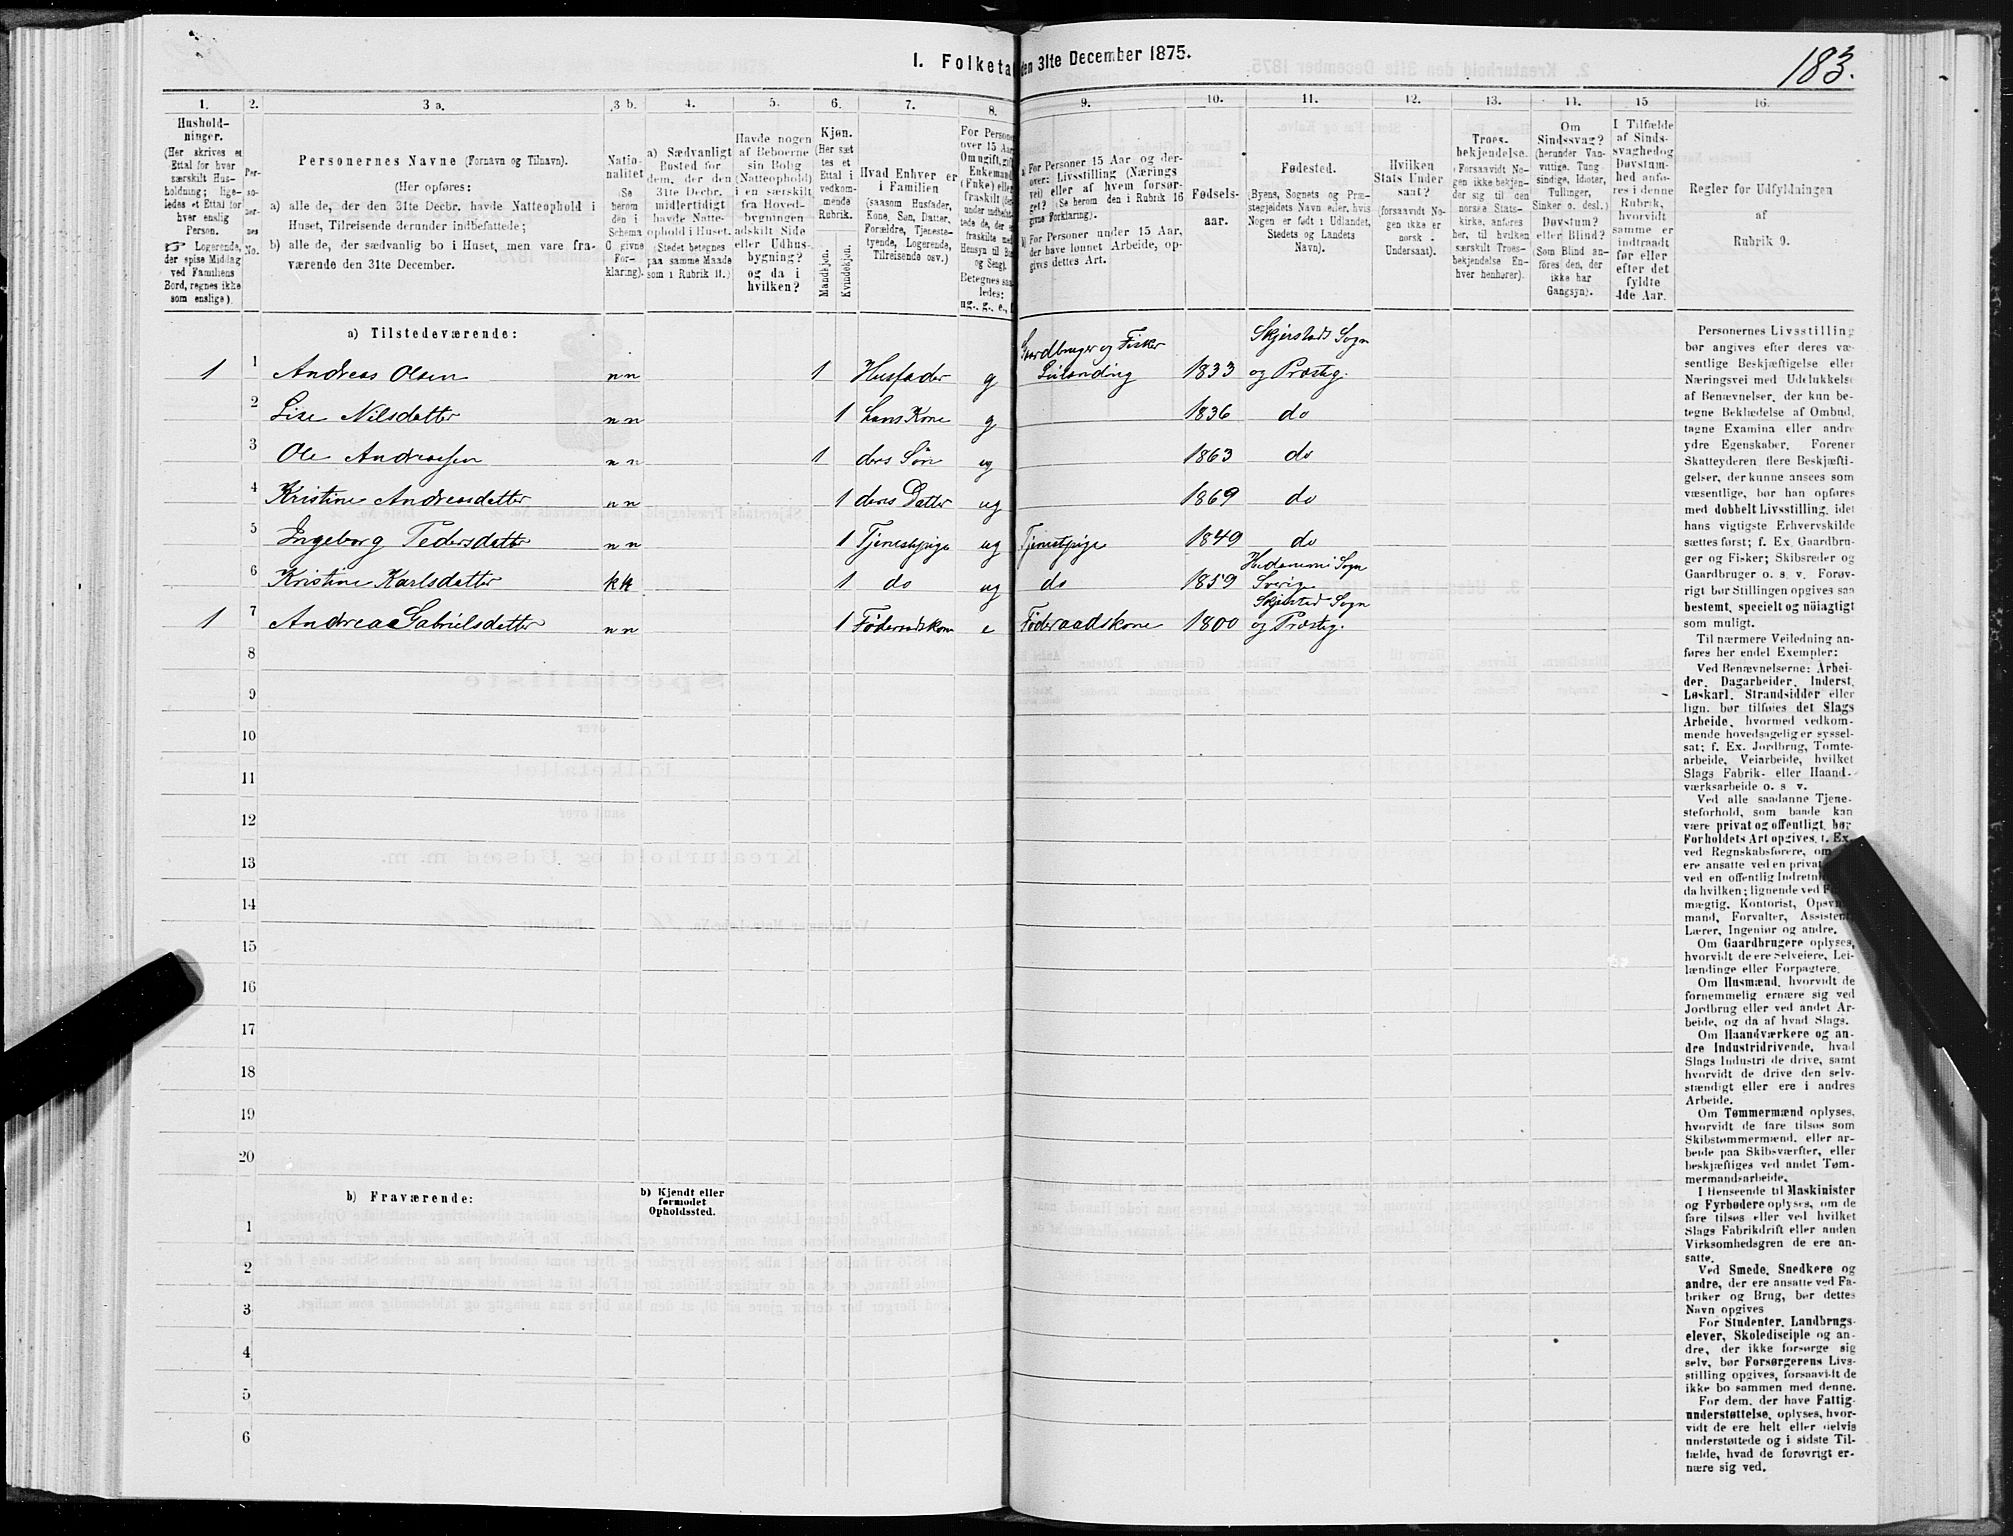 183.
I. Folketa
den 31te December 1875.
1. 2. 3 a. 3 b. 4. 5. 6. 7. 8. 9. 10. 11. 12. 13. 14. 15 16.
Hushold-
ninger.
(Her skrives et
Ettal for hver
særskilt Hus-
holdning; lige-
ledes et Ettal for
hver enslig
Person.
☞ Logerende,
der spise Middag
ved Familiens
Bord, regnes ikke
som enslige).
Per-
so-
ner-
nes
No.
Personernes Navne (Fornavn og Tilnavn).
(Her opføres:
a) alle de, der den 31te Decbr. havde Natteophold i
Huset, Tilreisende derunder indbefattede;
b) alle de, der sædvanlig bo i Huset, men vare fra-
værende den 31te December.
Natio-
nalitet
(Se
herom
den i
Schema
C givne
For-
klaring).
a) Sædvanligt
Bosted for
dem, der den
31te Decbr.
midlertidigt
havde Natte-
ophold i Huset.
(Stedet betegnes
paa samme Maade
som i Rubrik 11.)
Havde nogen
af Beboerne
sin Bolig
(Natteophold)
i en særskilt
fra Hoved-
bygningen
adskilt Side
eller Udhus-
bygning?
og da i
hvilken?
Kjøn.
(Her sæt
tes et
Ettal i
vedkom-
mende
Rubrik.
Mandkjøn.
Kvindekjøn.
Hvad Enhver er
i Familien
(saasom Husfader,
Kone, Søn, Datter,
Forældre, Tjeneste-
tyende, Logerende,
Tilreisende osv.)
For Persone
over 15 Aar
Om ugift, gift
Enkemand
(Enke) eller
fraskilt
Betegnes saa
ledes:
ug., g., e.,
a) For Personer 15 Aar og der-
over: Livsstilling (Nærings
vei) eller af hvem forsør-
get? (Se herom den i Rubrik 16
givne Forklaring).
b) For Personer under 15 Aar,
der have lønnet Arbeide, op-
gives dettes Art.
Fødsels-
aar.
Fødested.
(Byens, Sognets og Præ-
stegjeldets Navn eller, hvis
Nogen er født i Udlandet,
Stedets og Landets
Navn).
Hvilken
Stats Under
saat?
(forsaavidt No-
gen ikke er
norsk
Undersaat).
Troes-
bekjendelse.
(Forsaavidt No-
gen ikke bekjen-
der sig til den
norske Stats-
kirke, anføres
her, til hvilken
særskilt Troes-
bekjendelse En-
hver henhører).
Om
Sindssvag?
(herunder Van-
vittige, Tung-
sindige, Idioter,
Tullinger,
Sinker o. desl.)
Døvstum?
eller Blind?
(Som Blind an-
føres den, der
ikke har
Gangsyn).
I Tilfælde
af Sinds-
svaghed og
Døvstum-
hed anfø-
res i denne
Rubrik,
hvorvidt
samme er
indtraadt
før eller
efter det
fyldte
4de Aar.
Regler for Udfyldningen
af
Rubrik 9.
a) Tilstedeværende:
1 1 Andreas Olsen nn 1 Husfader g Gaardbruger og Fisker Leilænding 1833 Skjerstads Sogn og Præstg.
2 Lise Nilsdatter nn 1 hans Kone g 1836 do
3 Ole Andreasen nn 1 deres Søn ug 1863 do
4 Kristine Andreasdatter nn 1 deres Datter ug 1869 do
5 Ingeborg Pedersdatter nn 1 Tjenestpige ug Tjenestpige 1849 do
6 Kristine Karlsdatter kk 1 do ug do 1859 Sogn Sverig
1 7 Andrea Gabrielsdatter nn 1 Føderaadskone e Føderaadskone 1800 Skjerstad Sogn og Præstg.
8
9
10
11
12
13
14
15
16
17
18
19
20
b) Fraværende:
b) Kjendt eller
formodet
Opholdssted.
1
2
3
4
5
6
Personernes Livsstilling
bør angives efter deres væ-
sentlige Beskjæftigelse eller
Næringsvei med Udelukkelse
af Benævnelser, der kun be-
tegne Beklædelse af Ombud,
tagne Examina eller andre
ydre Egenskaber. Forener
Skatteyderen flere Beskjæfti-
gelser, der kunne ansees som
væsentlige, bør han opføres
med dobbelt Livsstilling, idet
hans vigtigste Erhvervskilde
sættes først; f. Ex. Gaardbru-
ger og Fisker; Skibsreder og
Gaardbruger o. s. v. Forøv-
rigt bør Stillingen opgives saa
bestemt, specielt og nøiagtigt
som muligt.
Til nærmere Veiledning an-
føres her endel Exempler:
Ved Benævnelserne: Arbei-
der, Dagarbeider, Inderst,
Løskarl, Strandsidder eller
lign. bør tilføies det Slags
Arbeide, hvormed vedkom-
mende hovedsagelig er syssel-
sat; f. Ex. Jordbrug, Tomte-
arbeide, Veiarbeide, hvilket
Slags Fabrik- eller Haand-
værksarbeide o. s v.
Ved alle saadanne Tjene-
steforhold, som baade kan
være privat og offentligt, bør
Forholdets Art opgives, t. Ex.
ved Regnskabsførere, om
ere ansatte ved en privat
ved en offentlig Indretni
da hvilken; lignende ved F
mægtig, Kontorist, Opsyns
mand, Forvalter, Assistent,
Lærer, Ingeniør og andre.
Om Gaardbrugere oplyses,
hvorvidt de ere Selveiere, Lei-
lændinge eller Forpagtere.
Om Husmænd, hvorvidt de
fornemmelig ernære sig ved
Jordbrug eller ved andet Ar-
beide, og da af hvad Slags.
Om Haandværkere og an-
dre Industridrivende, hvad
Slags Industri de drive, samt
hvorvidt de drive den selv-
stændigt eller ere i andres
Arbeide.
Om Tømmermænd oplyses,
hvorvidt de fare tilsøs som
Skibstømmermænd, eller ar-
beide paa Skibsværfter, eller
beskjæftiges ved andet Tøm-
mermandsarbeide.
I Henseende til Maskinister
og Fyrbødere oplyses, om de
fare tilsøs eller ved hvilket
Slags Fabrikdrift eller anden
Virksomhedsgren de ere an-
satte.
Ved Smede, Snedkere og
andre, der ere ansatte ved Fa-
briker og Brug, bør dettes
Navn opgives
For Studenter, Landbrugs-
elever, Skoledisciple og an-
dre, der ikke forsørge sig
selv, bør Forsørgerens Livs-
stilling opgives, forsaavidt de
ikke bo sammen med denne.
For dem, der have Fattig-
understøttelse, oplyses, hvor-
vidt de ere helt eller delvis
understøttede og i sidste Til-
fælde, hvad de forøvrigt er-
nære sig ved.